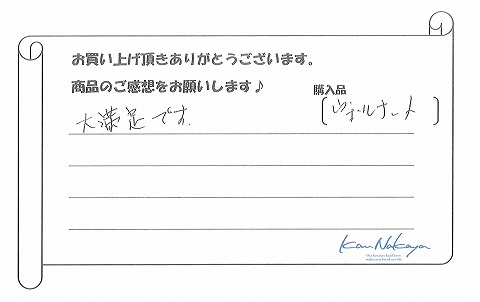 お買い上げ頂きありがとうございます。
商品のご感想をお願いします♪
購入品
大満足です.
〔ウォールナット〕
Kan Nakaya